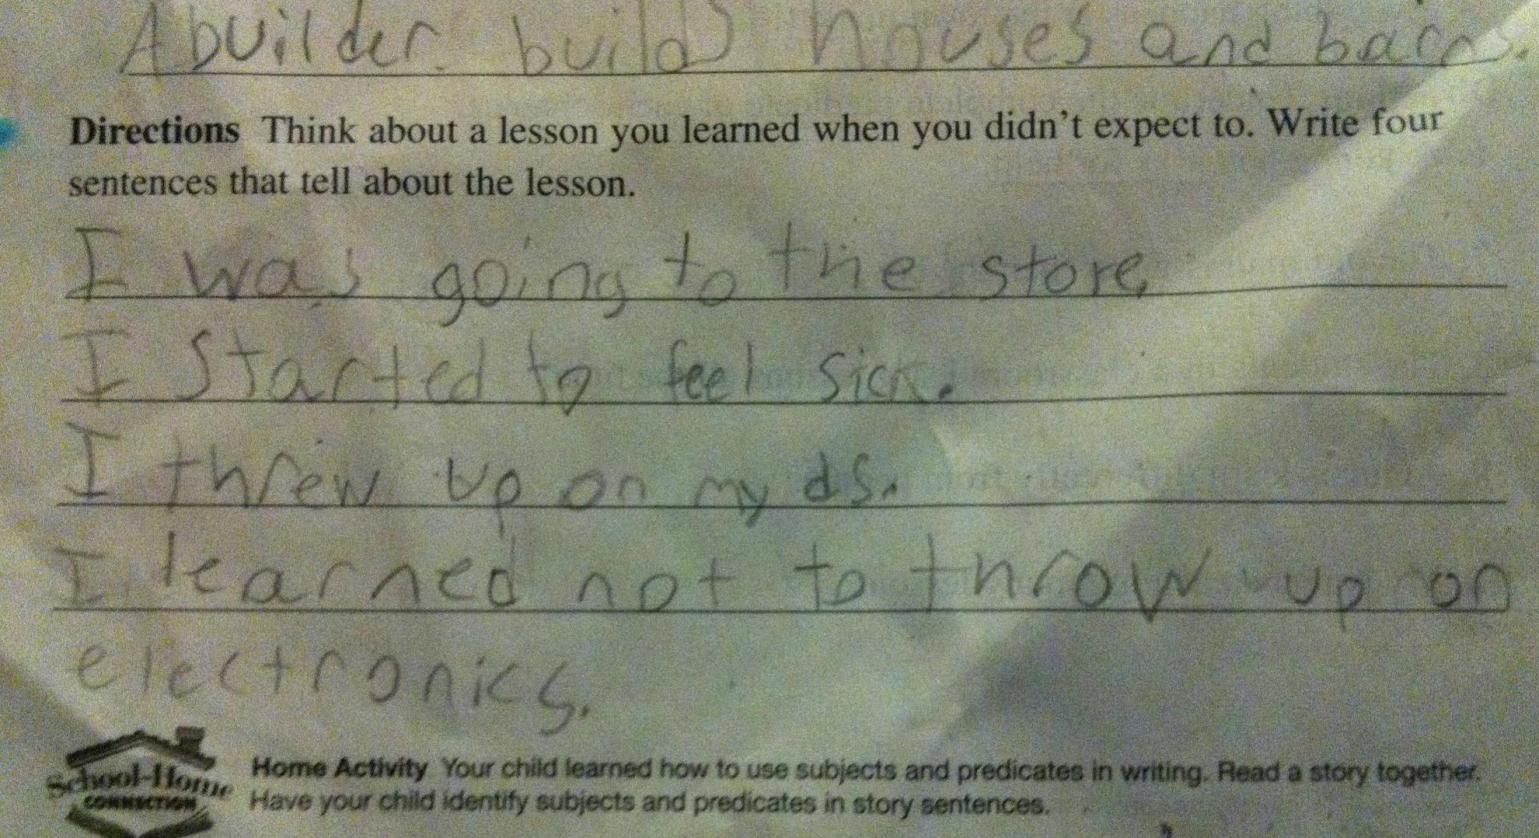 A builder builds houses and barns.
Directions Think about a lesson you learned when you didn't expect to. Write four
sentences that tell about the lesson.
I was going to the store
I started to feel sick.
I threw up on my ds.
I learned not to throw up on
electronics.
School-Home
CONNECTION
Home Activity Your child learned how to use subjects and predicates in writing. Read a story together.
Have your child identify subjects and predicates in story sentences.